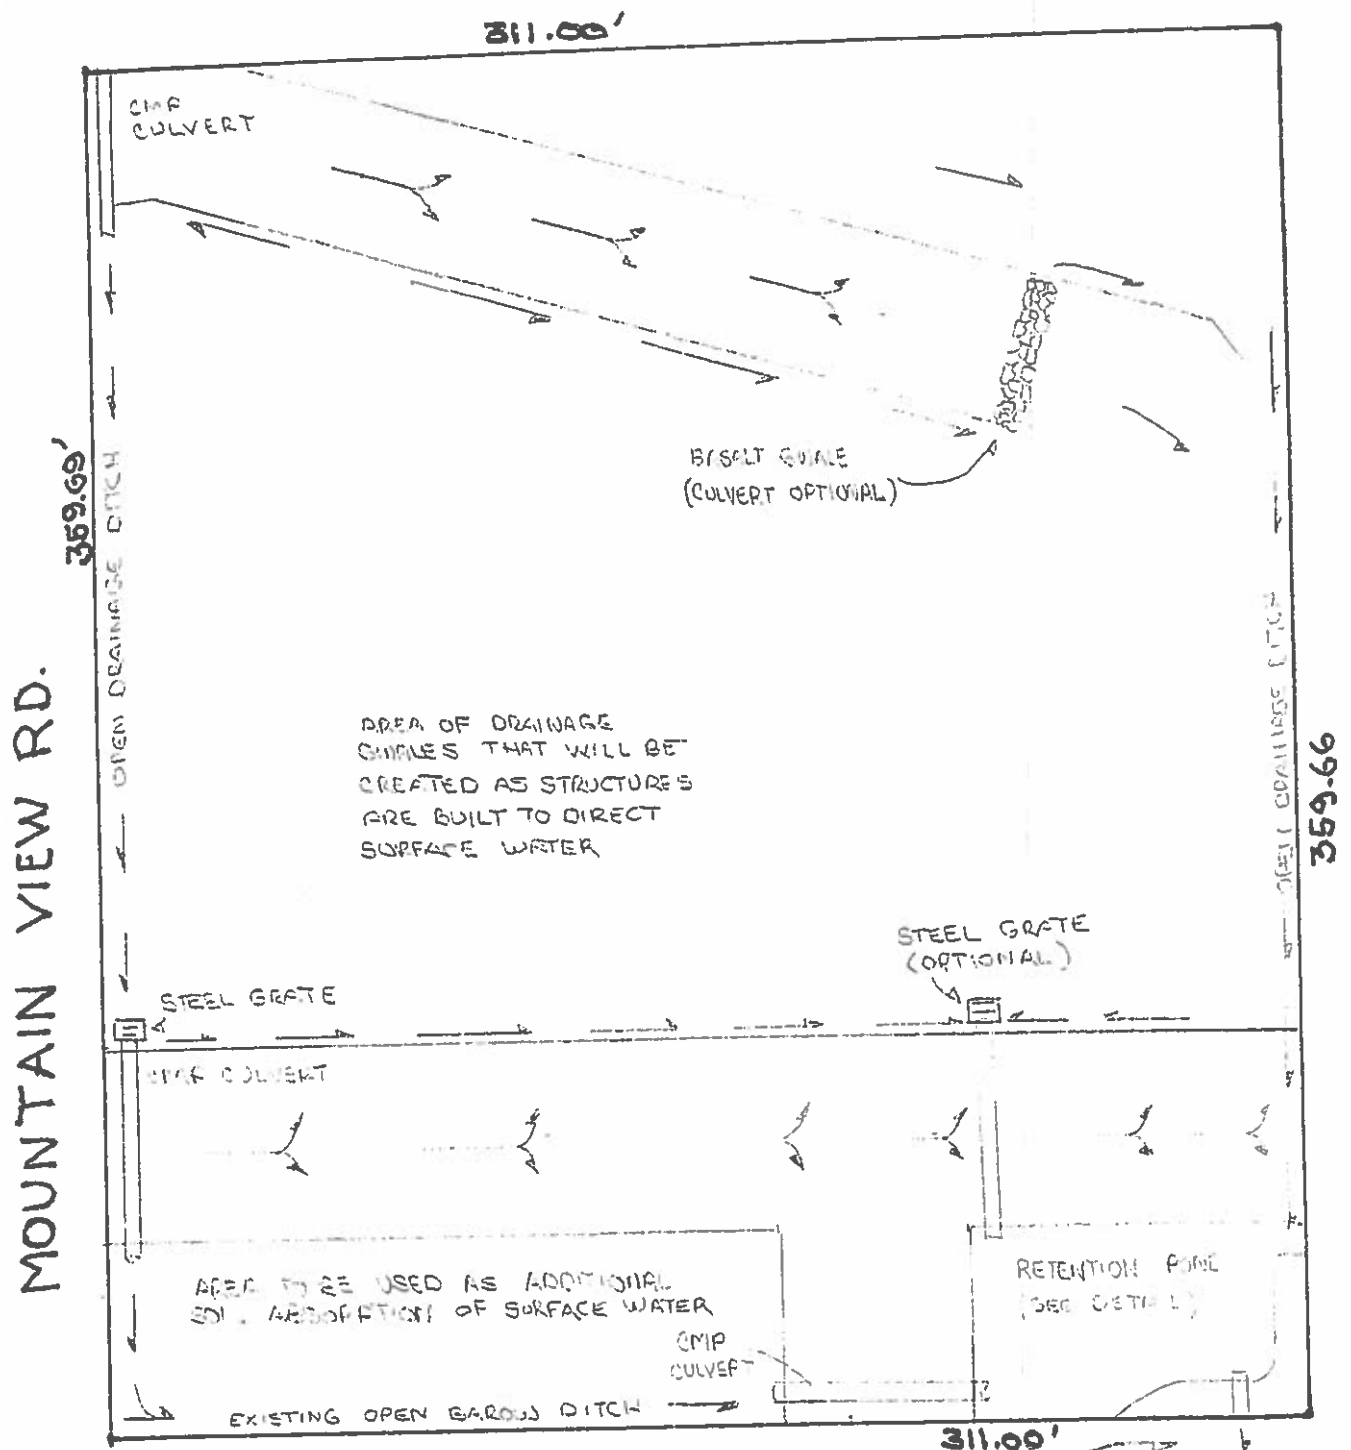 311.00'
CMP
CULVERT
359.69'
OPEN DRAINAGE DITCH
BASALT SWALE
(CULVERT OPTIONAL)
MOUNTAIN VIEW RD.
AREA OF DRAINAGE
SWALES THAT WILL BE
CREATED AS STRUCTURES
ARE BUILT TO DIRECT
SURFACE WATER
OPEN DRAINAGE DITCH
359.66
STEEL GRATE
(OPTIONAL)
STEEL GRATE
CMP CULVERT
AREA TO BE USED AS ADDITIONAL
SOIL ABSORPTION OF SURFACE WATER
RETENTION POND
(SEE DETAIL)
CMP
CULVERT
EXISTING OPEN BAROW DITCH
311.00'